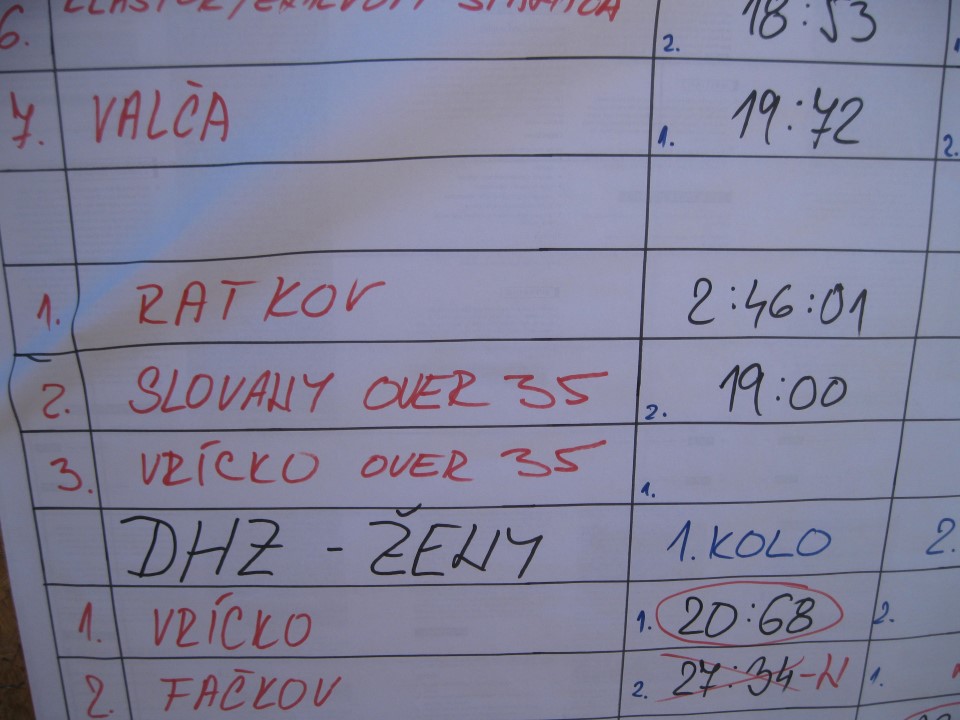 6. 2. 18:53
7. VALČA 1. 19:72 2.
1. RATKOV 2:46:01
2. SLOVANY OVER 35 2. 19:00
3. VRÍCKO OVER 35 1.
DHZ - ŽENY 1. KOLO 2.
1. VRÍCKO 1. 20:68 2.
2. FAČKOV 2. 27:34-N 1.